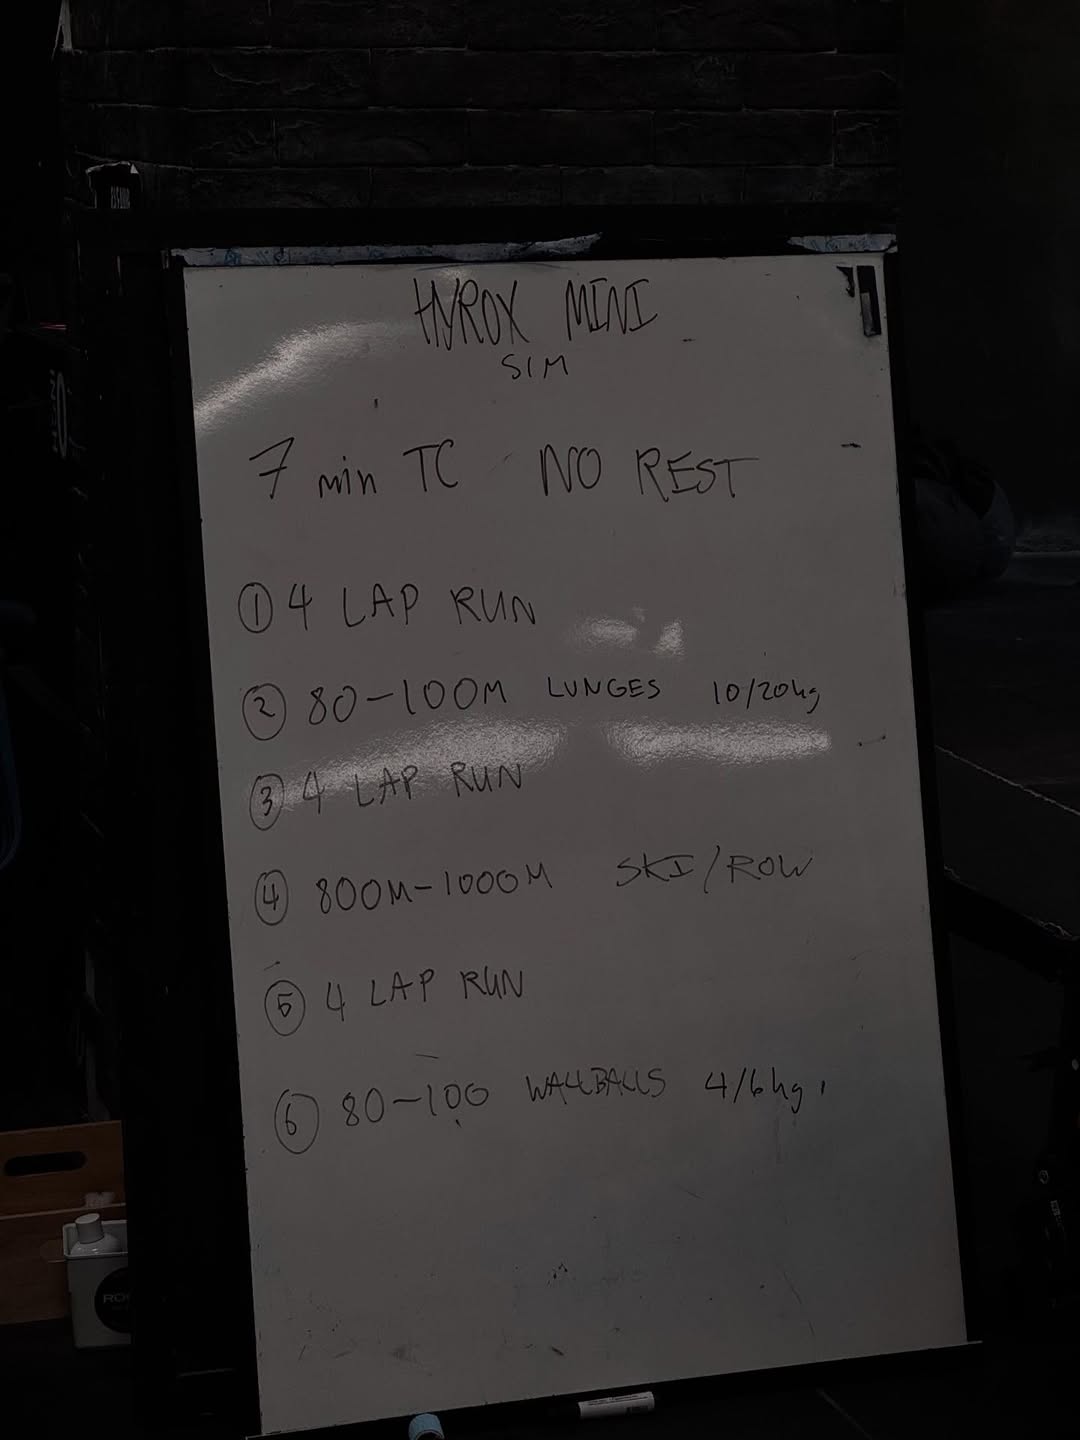 HYROX MINI
SIM
7 min TC NO REST
① 4 LAP RUN
② 80-100M LUNGES 10/20kg
③ 4 LAP RUN
④ 800M-1000M SKI/ROW
⑤ 4 LAP RUN
⑥ 80-100 WALLBALLS 4/6kg